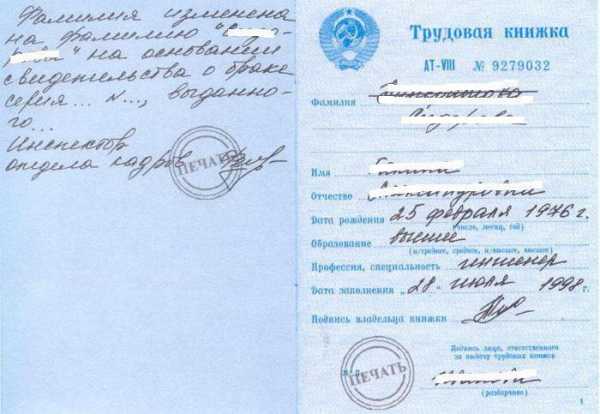 Фамилия изменена
на фамилию "
" на основании
свидетельства о браке
серия... №..., выданно-
го...
Инспектор
отдела кадров
ПЕЧАТЬ
Трудовая книжка
АТ-VIII № 9279032
Фамилия
Имя
Отчество
Дата рождения 25 февраля 1976 г.
(число, месяц, год)
Образование высшее
Профессия, специальность инженер
Дата заполнения „28" июля 1998 г.
Подпись владельца книжки
Подпись лица, ответственного
за выдачу трудовых книжек
ПЕЧАТЬ
(разборчиво)
1